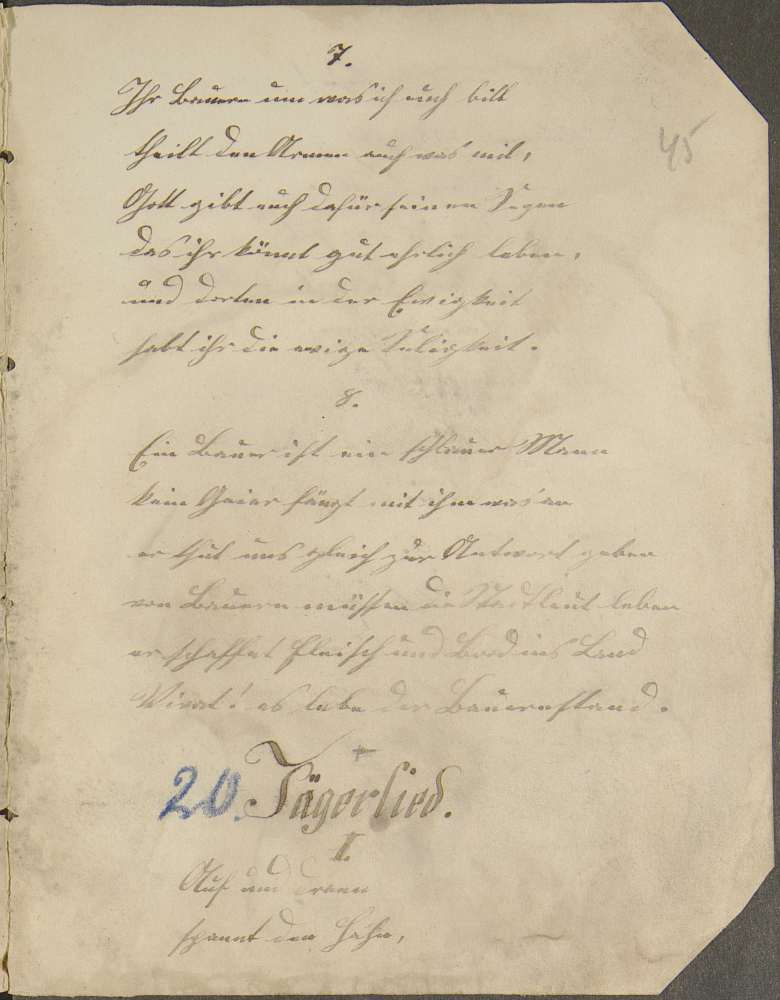 7.
Ihr Bauern um was ich euch bitt
45
theilt den Armen auch was mit,
Gott gibt euch dafür seinen Segen
das ihr könnt gut ehrlich leben,
und dorten in der Ewigkeit
habt ihr die ewige Seligkeit.
8.
Ein Bauer ist ein schlauer Mann
kein Geier fängt mit ihm was an
er thut uns gleich zur Antwort geben
von Bauern müssen die Stadtleut leben
er schaffet Fleisch und Brod ins Land
Vivat! es lebe der Bauernstand.
20. Jägerlied.
1.
Auf und drann
spannt den Hahn,